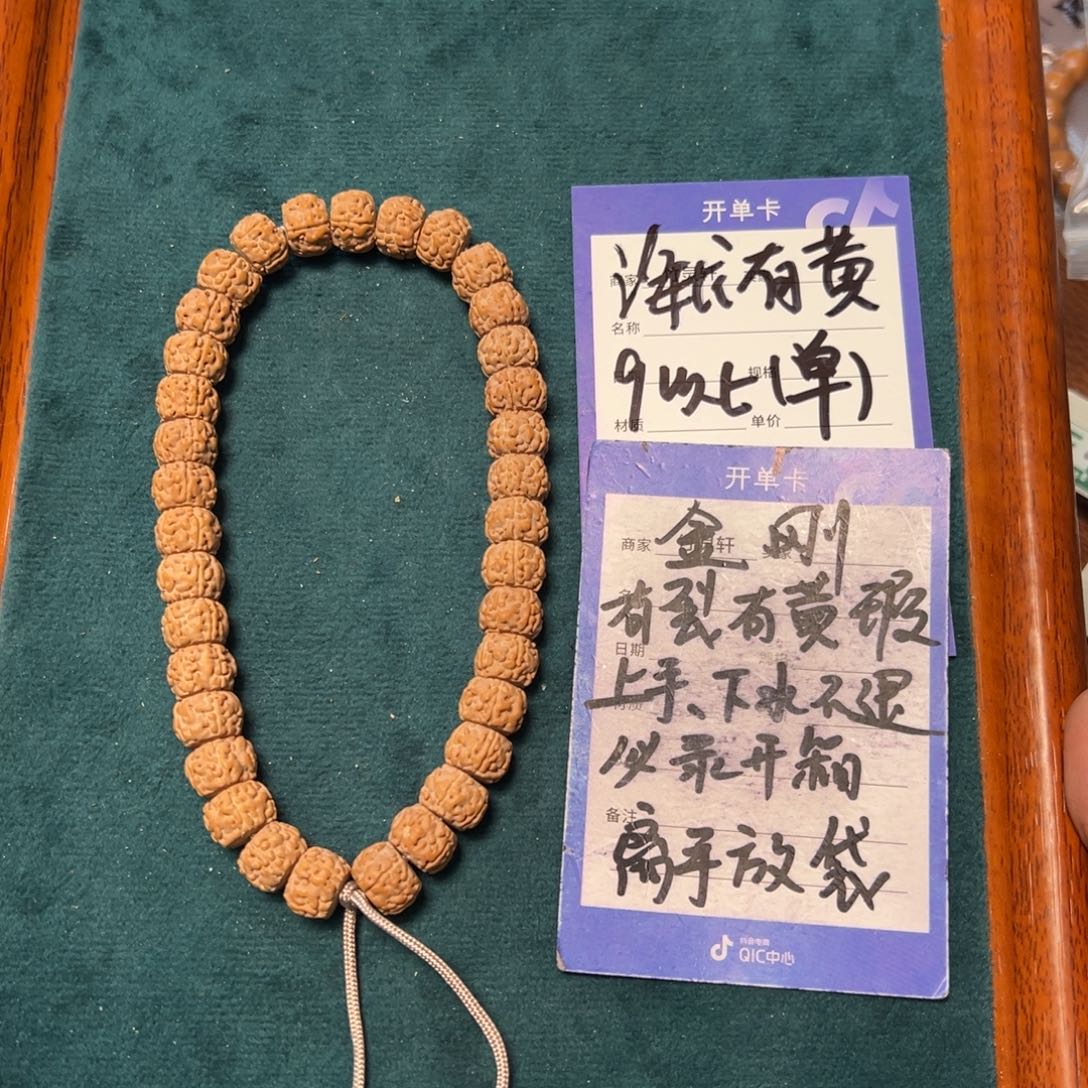 开单卡
有黄
名称
9以上(单)
规格
材质
单价
开单卡
商家
轩
金刚
有裂有黄 瑕
日期
上手、下水不退
必录开箱
备注
扁平放袋
抖音电商
QIC中心